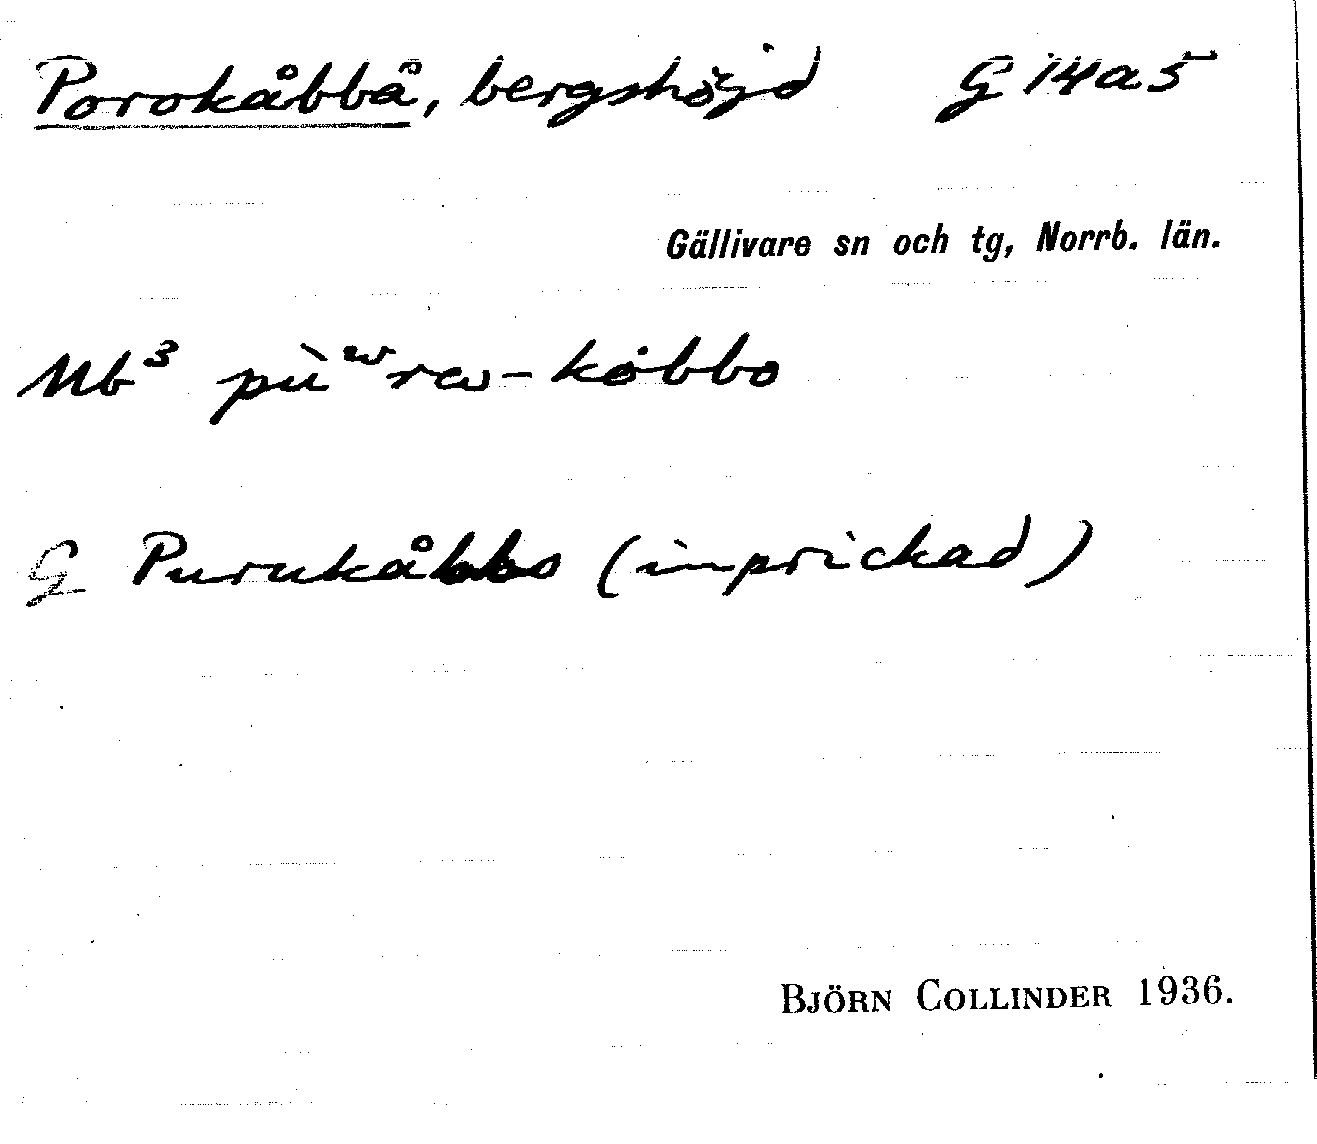 Porokåbbå, bergshöjd G 14a5
Gällivare sn och tg, Norrb. län.
Mb³ pùʷrɷ-kȯbbo
G Purukåbbo (inprickad)
BJÖRN COLLINDER 1936.